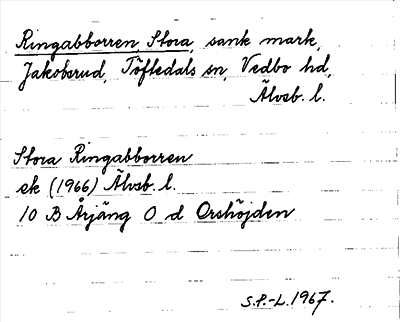 Ringabborren, Stora, sank mark,
Jakobsrud, Töftedals sn, Vedbo hd,
Älvsb. l.
Stora Ringabborren
ek (1966) Älvsb. l.
10 B Årjäng O d Orshöjden
S.P.-L. 1967.